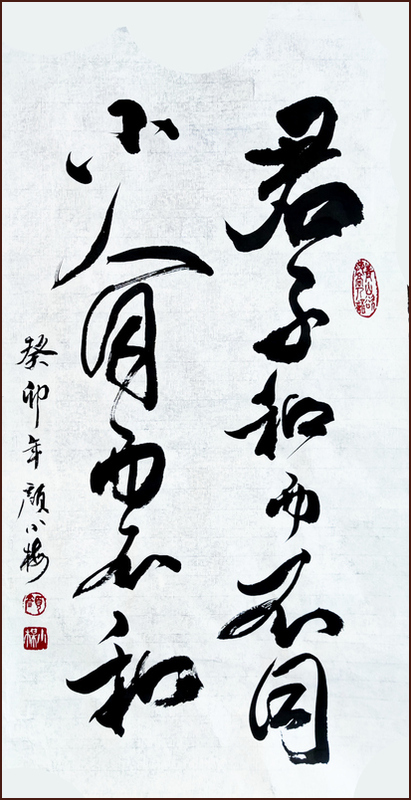 君子和而不同
小人同而不和
癸卯年顏小梅